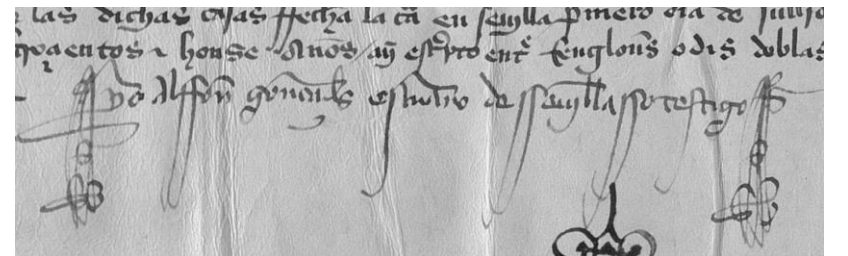 las dichas casas ffecha la cã en seuilla pmero dia de jullio
quaentos τ honse Años ay escpto entˢ Renglonˢ o dis doblas
yo Alffoñ gonçals escriuão de Seuilla so testigo